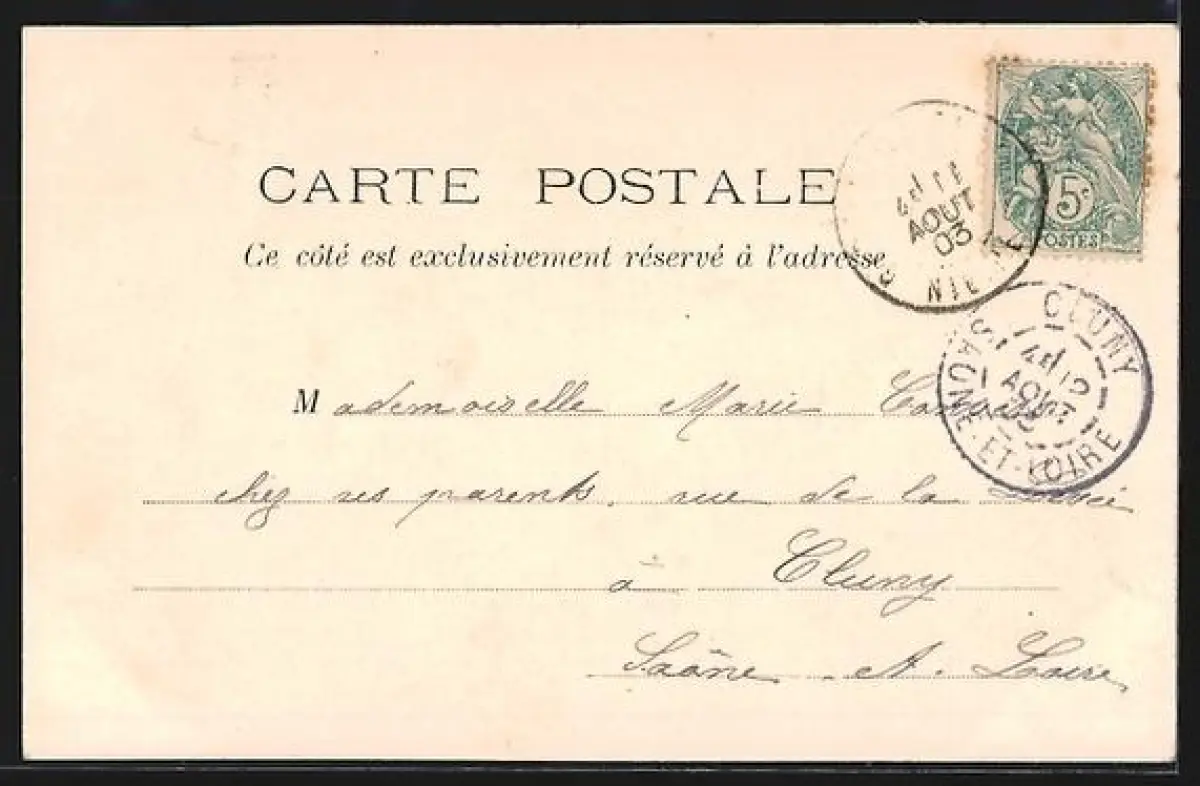 CARTE POSTALE
Ce côté est exclusivement réservé à l'adresse
5c
POSTES
11
AOUT
03
CLUNY
12
AOUT
SAONE-ET-LOIRE
Mademoiselle Marie
chez ses parents, rue de la
à Cluny
Saône et Loire